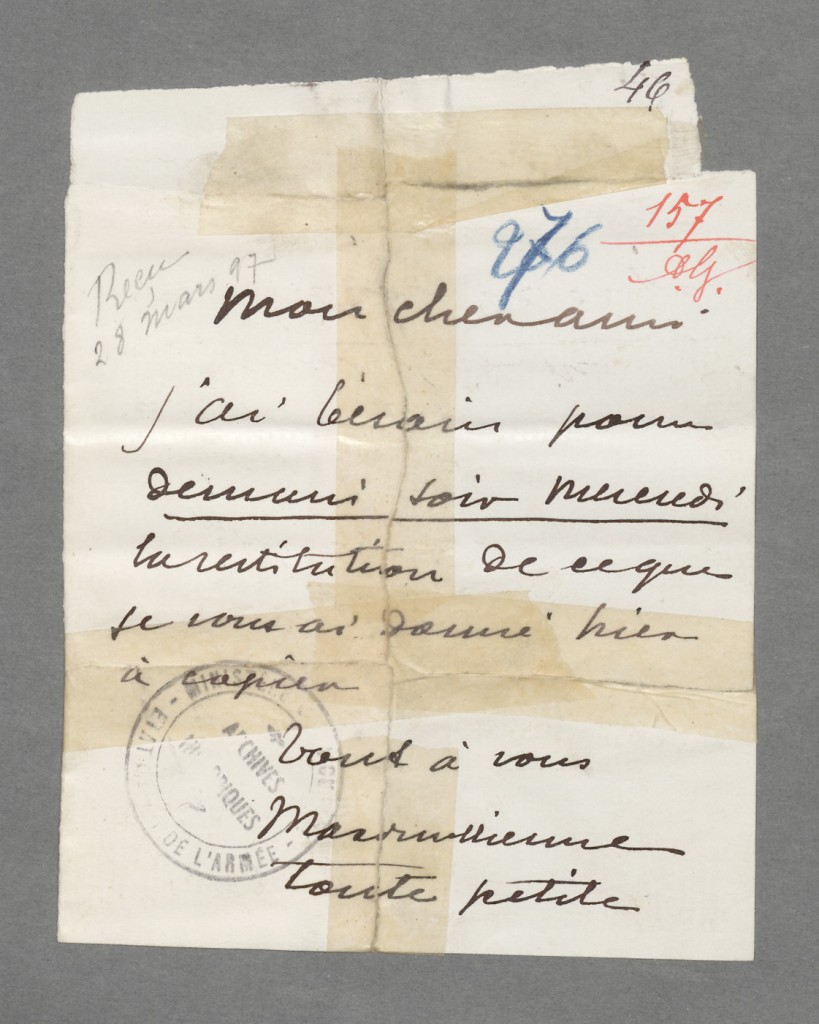 46
157
276
A.G.
Recu
28 mars 97
Mon cher ami
j'ai besoin pour
demain soir mercredi
la restitution de ce que
je vous ai donné hier
à copier
Tout à vous
Maximilienne
toute petite
MINIST
ETAT
DE L'ARMÉE
ARCHIVES